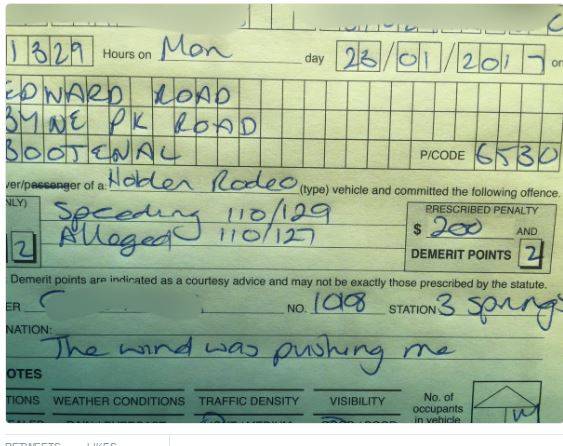 1329 Hours on Mon day 23/01/2017 on
EDWARD ROAD
BYNE PK ROAD
BOOTENAL P/CODE 6530
ver/passenger of a: Holden Rodeo (type) vehicle and committed the following offence.
NLY) Speeding 110/129 PRESCRIBED PENALTY
2 Alleged 110/127 $ 200 AND
DEMERIT POINTS 2
Demerit points are indicated as a courtesy advice and may not be exactly those prescribed by the statute.
ER NO. STATION 3 Springs
NATION:
The wind was pushing me
OTES
TIONS WEATHER CONDITIONS TRAFFIC DENSITY VISIBILITY No. of occupants in vehicle
RETWEETS LIKES